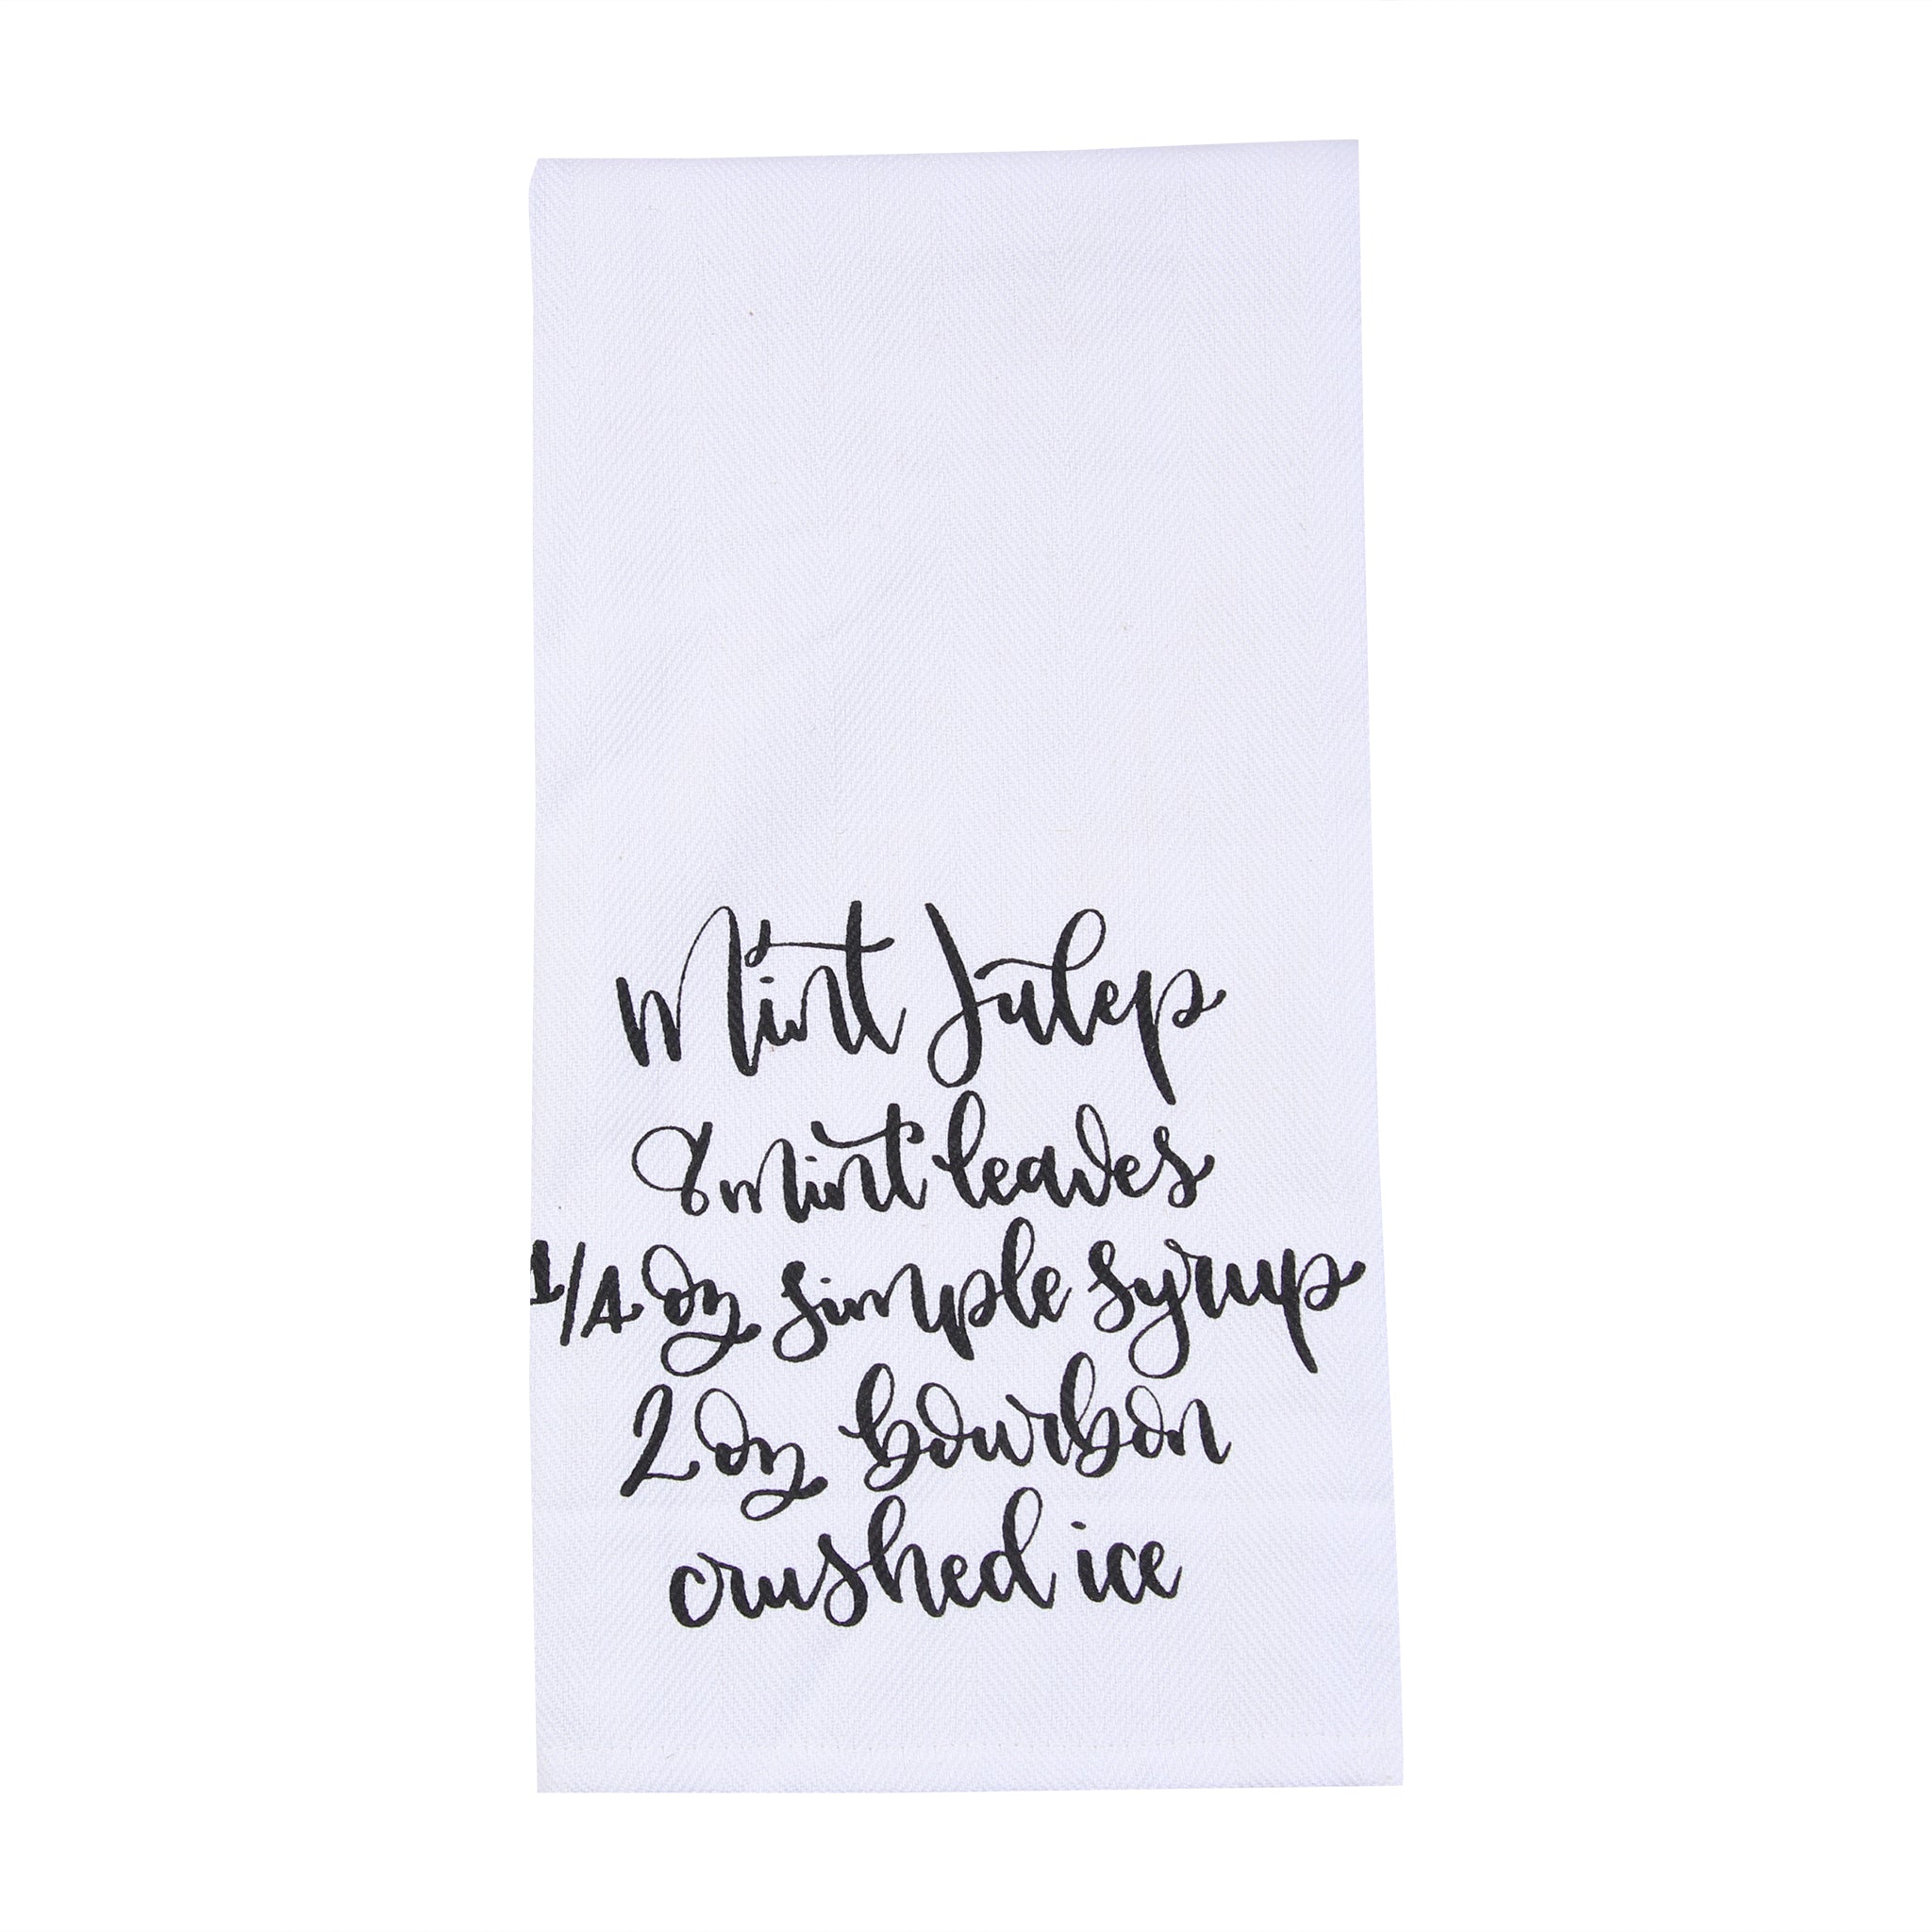 Mint Julep
8 mint leaves
1/4 oz simple syrup
2 oz bourbon
crushed ice